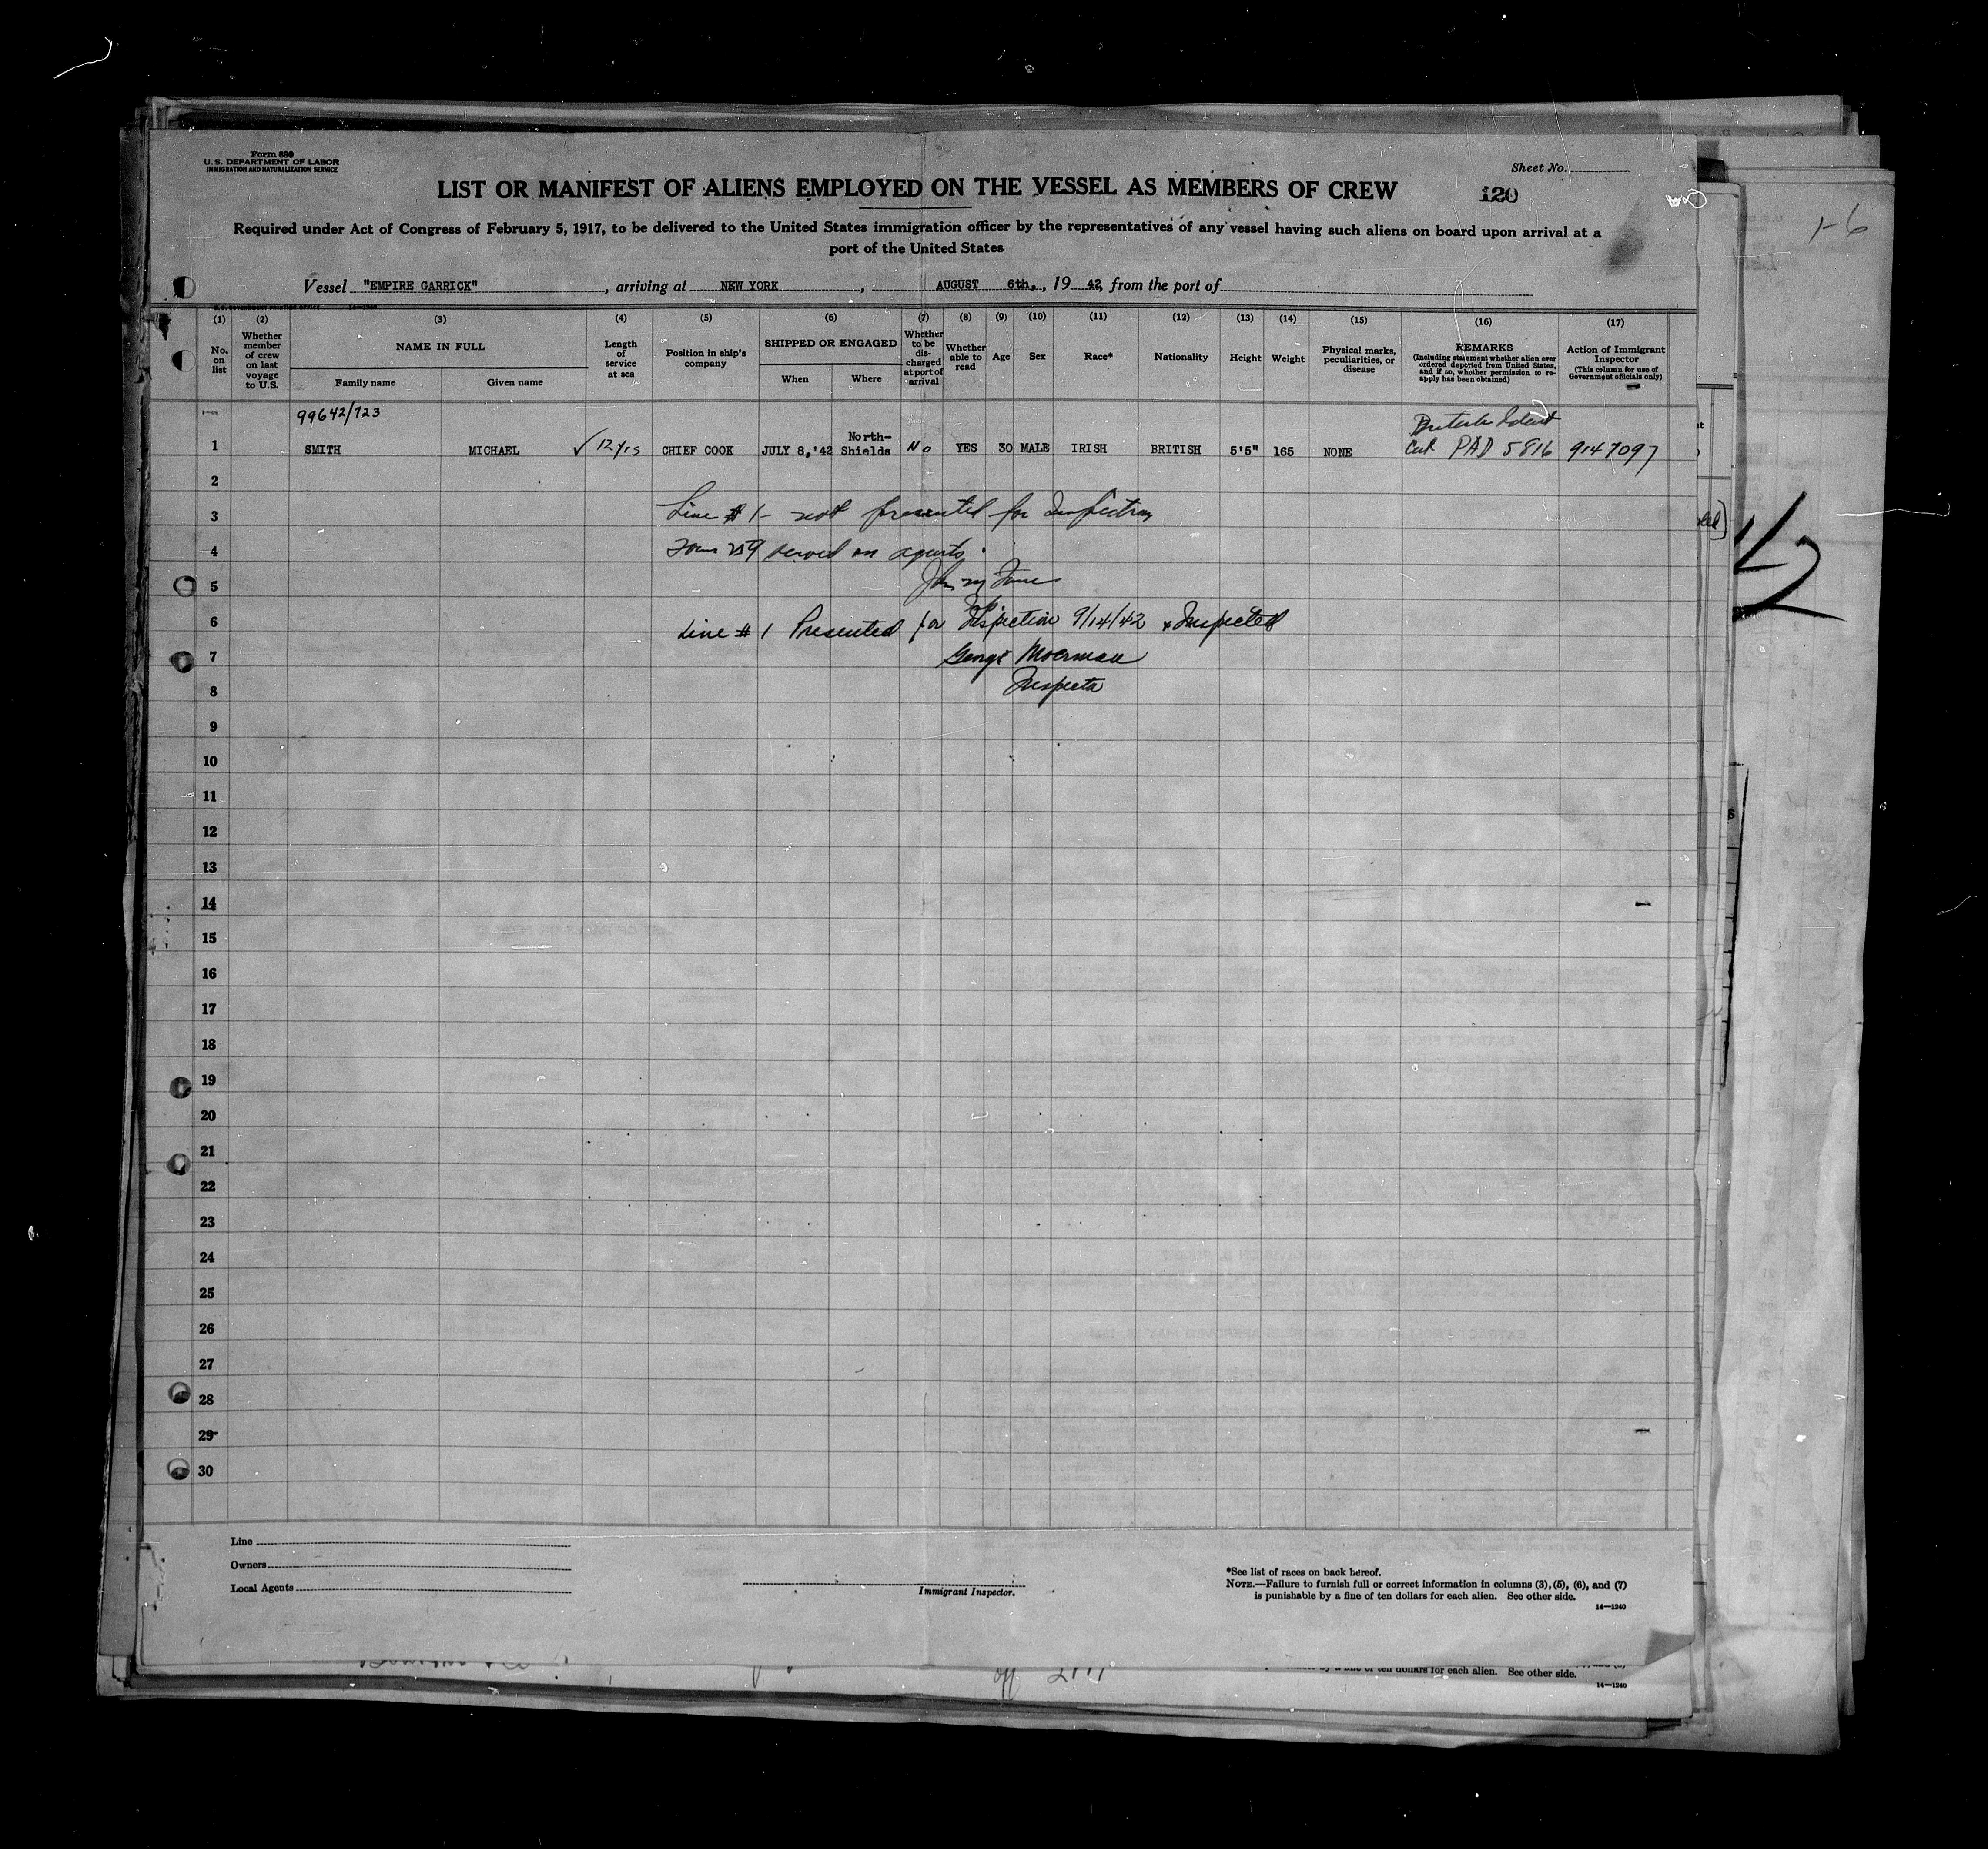 Form 680
U. S. DEPARTMENT OF LABOR
IMMIGRATION AND NATURALIZATION SERVICE
Sheet No.
LIST OR MANIFEST OF ALIENS EMPLOYED ON THE VESSEL AS MEMBERS OF CREW
120
Required under Act of Congress of February 5, 1917, to be delivered to the United States immigration officer by the representatives of any vessel having such aliens on board upon arrival at a
port of the United States
1-6
Vessel "EMPIRE GARRICK", arriving at NEW YORK, AUGUST 6th, , 19 42, from the port of
(1) (2) (3) (4) (5) (6) (7) (8) (9) (10) (11) (12) (13) (14) (15) (16) (17)
No. on list
Whether member of crew on last voyage to U.S.
NAME IN FULL
Family name Given name
Length of service at sea
Position in ship's company
SHIPPED OR ENGAGED
When Where
Whether to be discharged at port of arrival
Whether able to read
Age
Sex
Race*
Nationality
Height
Weight
Physical marks, peculiarities, or disease
REMARKS
(Including statement whether alien ever ordered deported from United States, and if so, whether permission to re-apply has been obtained)
Action of Immigrant Inspector
(This column for use of Government officials only)
99642/723
British Ident
1 SMITH MICHAEL ✓ 12 yrs CHIEF COOK JULY 8,'42 North-Shields No YES 30 MALE IRISH BRITISH 5'5" 165 NONE Card PAD 5816 9147097
2
3 Line #1- not presented for Inspection
4 Form 259 served on agents.
5
6 Line #1 Presented for Inspection 9/14/42 & Inspected
7 George Moerman
8 Inspector
9
10
11
12
13
14
15
16
17
18
19
20
21
22
23
24
25
26
27
28
29
30
Line
Owners
Local Agents
Immigrant Inspector.
*See list of races on back hereof.
NOTE.—Failure to furnish full or correct information in columns (3), (5), (6), and (7)
is punishable by a fine of ten dollars for each alien. See other side.
14—1240
ten dollars for each alien. See other side.
14—1240